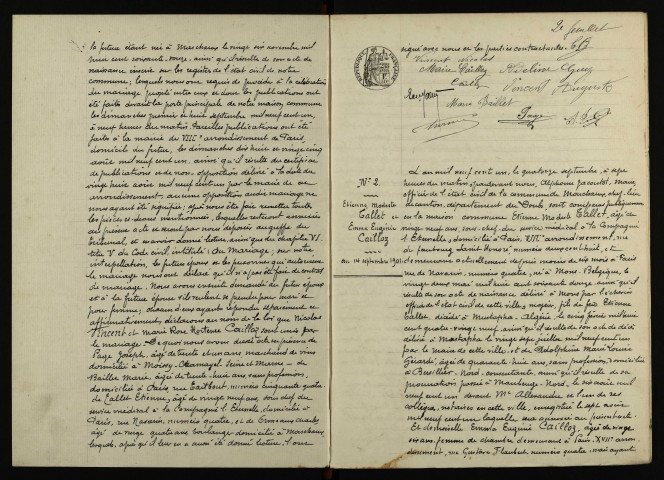 la future étant né à Marchaux le vingt six novembre mil
huit cent soixante onze, ainsi qu'il résulte de son acte de
naissance inscrit sur les registres de l'état civil de notre
commune, lesquels nous ont requis de procéder à la célébration
du mariage projeté entre eux et dont les publications ont
été faites devant la porte principale de notre maison commune
les dimanches premier et huit septembre mil neuf cent un,
à neuf heures du matin. Pareilles publications ont été
faites à la mairie du VIIIe arrondissement de Paris
domicile du futur, les dimanches dix huit et vingt cinq
août mil neuf cent un, ainsi qu'il résulte du certificat
de publications et de non opposition délivré à la date du
vingt huit août mil neuf cent un par le maire de cet
arrondissement, aucune opposition audit mariage ne
nous ayant été signifiée, après nous être fait remettre toutes
les pièces ci-dessus mentionnées, lesquelles resteront annexées
au présent acte et seront par nous déposées au greffe du
tribunal, et en avoir donné lecture, ainsi que du chapitre VI,
titre V du Code civil, intitulé : du Mariage, sur notre
interpellation, les futurs époux et les personnes qui autorisent
le mariage nous ont déclaré qu'il n'a pas été fait de contrat
de mariage. Nous avons ensuite demandé au futur époux
et à la future épouse s'ils veulent se prendre pour mari et
pour femme, chacun d'eux ayant répondu séparément et
affirmativement, déclarons au nom de la loi que Nicolas
Vincent et Marie Rose Hortense Cailloz sont unis par
le mariage. De quoi nous avons dressé acte en présence de
Page Joseph, âgé de trente et un ans marchand de vins
domicilié à Moissy Cramayel Seine et Marne - de
Baillet Marie, âgée de trente huit ans sans profession,
domiciliée à Paris rue Taitbout, numéro cinquante quatre
de Callet Etienne, âgé de vingt neuf ans, sous chef du
service médical à la Compagnie l'Eternelle, domicilié à
Paris, rue Navarin, numéro quatre, et de
âgé de vingt quatre ans boulanger domicilié à Marchaux
lesquels, après qu'il leur en a aussi été donné lecture, l'ont
2e feuillet
signé avec nous et les parties contractantes.
Vincent Nicolas
Marie Cailloz Adeline Guy
Cailloz Vincent Auguste
Marie Baillet
Page
N° 2
Etienne Modeste
Callet et
Emma Eugénie
Cailloz
du 14 septembre 1901
L'an mil neuf cent un, le quatorze septembre, à sept
heures du matin, par devant nous, Alphonse Jacoutot, Maire
officier de l'état civil de la commune de Marchaux, chef-lieu
de canton, département du Doubs sont comparus publiquement
en la maison commune Etienne Modeste Callet, âgé de
vingt neuf ans, sous-chef du service médical à la Compagnie
l'Eternelle, domicilié à Paris, VIIIe arrondissement, rue
du faubourg Saint Honoré, numéro cent huit, et
demeurant actuellement depuis moins de six mois à Paris
rue de Navarin, numéro quatre, né à Mons, Belgique, le
vingt deux mai mil huit cent soixante douze, ainsi qu'il
résulte de son acte de naissance délivré à Mons par l'échevin
officier de l'état civil de cette ville, majeur, fils de feu Etienne
Callet, décédé à Mustapha - Algérie, le cinq février mil huit
cent quatre-vingt neuf, ainsi qu'il résulte de son acte de décès
délivré à Mustapha le vingt sept juillet mil neuf cent un
par le maire de cette ville, et de Adolphine Marie Louise
Gérard, âgée de quarante huit ans, sans profession, domiciliée
à Nord, consentante, ainsi qu'il résulte de sa
procuration passée à Maubeuge - Nord, le six août mil
neuf cent un devant Me Allexandre et l'un de ses
collègues, notaires en cette ville, enregistrée le sept août
mil neuf cent un laquelle sera annexée au présent acte.
Et demoiselle Emma Eugénie Cailloz, âgée de vingt
six ans, femme de chambre demeurant à Paris, XVIIe arron-
dissement, rue Gustave Flaubert, numéro quatre, mais ayant